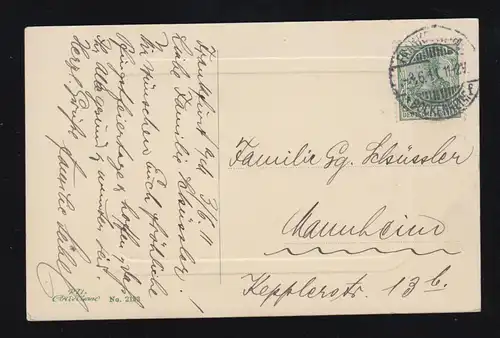 Frankfurt a/M 3/6 11
Liebe Familie Schüssler!
Wir wünschen Euch fröhliche
Pfingstfeiertage, hoffen, dass
Ihr alle gesund & munter seit.
Herzl. Grüße Familie
Familie Gg. Schüssler
Mannheim
Kepplerstr. 13 b.
No. 2193